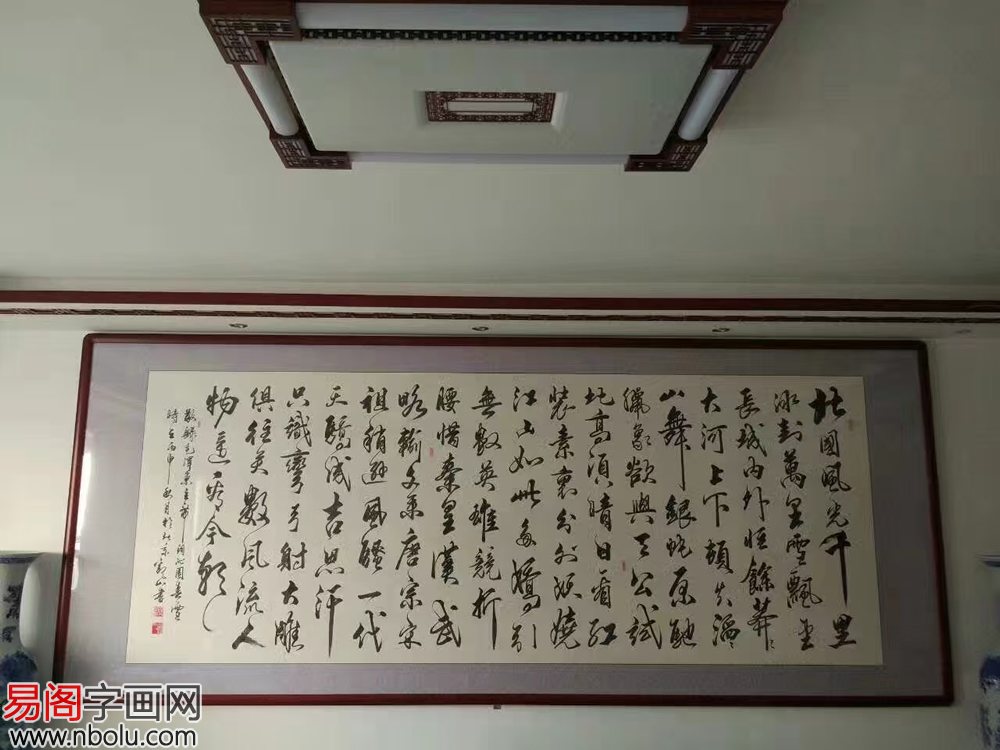 北國風光千里
冰封萬里雪飄望
長城內外惟餘莽々
大河上下頓失滔々
山舞銀蛇原馳
臘象欲與天公試
比高須晴日看紅
裝素裹分外妖嬈
江山如此多嬌引
無數英雄競折
腰惜秦皇漢武
略輸文采唐宗宋
祖稍遜風騷一代
天驕成吉思汗
只識彎弓射大雕
俱往矣數風流人
物還看今朝
敬錄毛澤東主席詞沁園春雪
時在丙申秋月於北京書
易阁字画网
www.nbolu.com